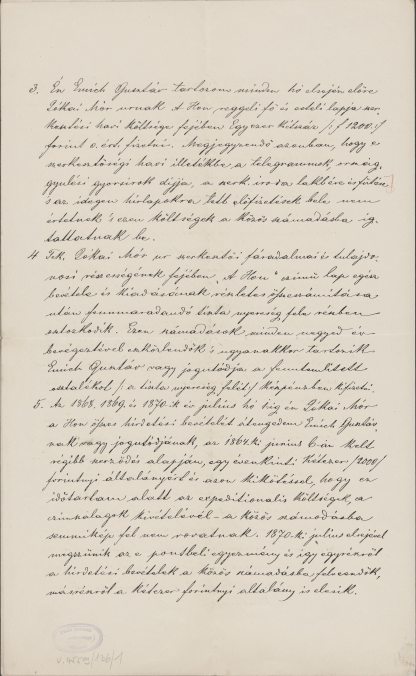 3. Én Emich Gusztáv tartozom minden hó elsején előre
Jókai Mór urnak A Hon, reggeli fő és esteli lapja szer-
kesztési havi költsége fejében Egyezer kétszáz /: f 1200 :/
forint o. ért. fizetni. Megjegyzendő azonban, hogy e
szerkesztőségi havi illetékbe a telegrammok, ország-
gyülési gyorsirók díjja, a szerk. iroda lakbére és fűtése
s az idegen hirlapokra tett előfizetések bele nem
értetnek s ezen költségek a közös számadásba ig-
tattatnak be.
4. Tek. Jókai Mór ur szerkesztői fáradalmai és tulajdo-
nosi részességének fejében „A Hon" czimű lap egész
bevétele és kiadásának részletes összeszámitása
után fennmaradandó tiszta nyereség fele részben
osztozkodik. Ezen számadások minden negyed év
bevégeztével eszközlendők s ugyanakkor tartozik
Emich Gusztáv vagy jogutódja a fenntemlitett
osztalékot /: a tiszta nyereség felét :/ készpénzben kifizetni.
5. Az 1868, 1869, és 1870-ik év julius hó 1ig én Jókai Mór
a Hon összes hirdetési bevételét átengedem Emich Gusztáv
nak vagy jogutódjának, az 1864. ki junius 6-án kelt
régibb szerződés alapján, egy évenkinti Kétezer /2000/
forintnyi átalányért és azon kikötéssel, hogy ez
időtartam alatt az expeditionalis költségek, a
czimszalagok kivételével – a közös számadásba
semmikép fel nem rovatnak. 1870-ki julius elsejével
megszünik az e pontbeli egyezmény és igy egyrészről
a hirdetési bevételek a közös számadásba felveendők,
másrészről a kétezer forintnyi átalány is elesik.